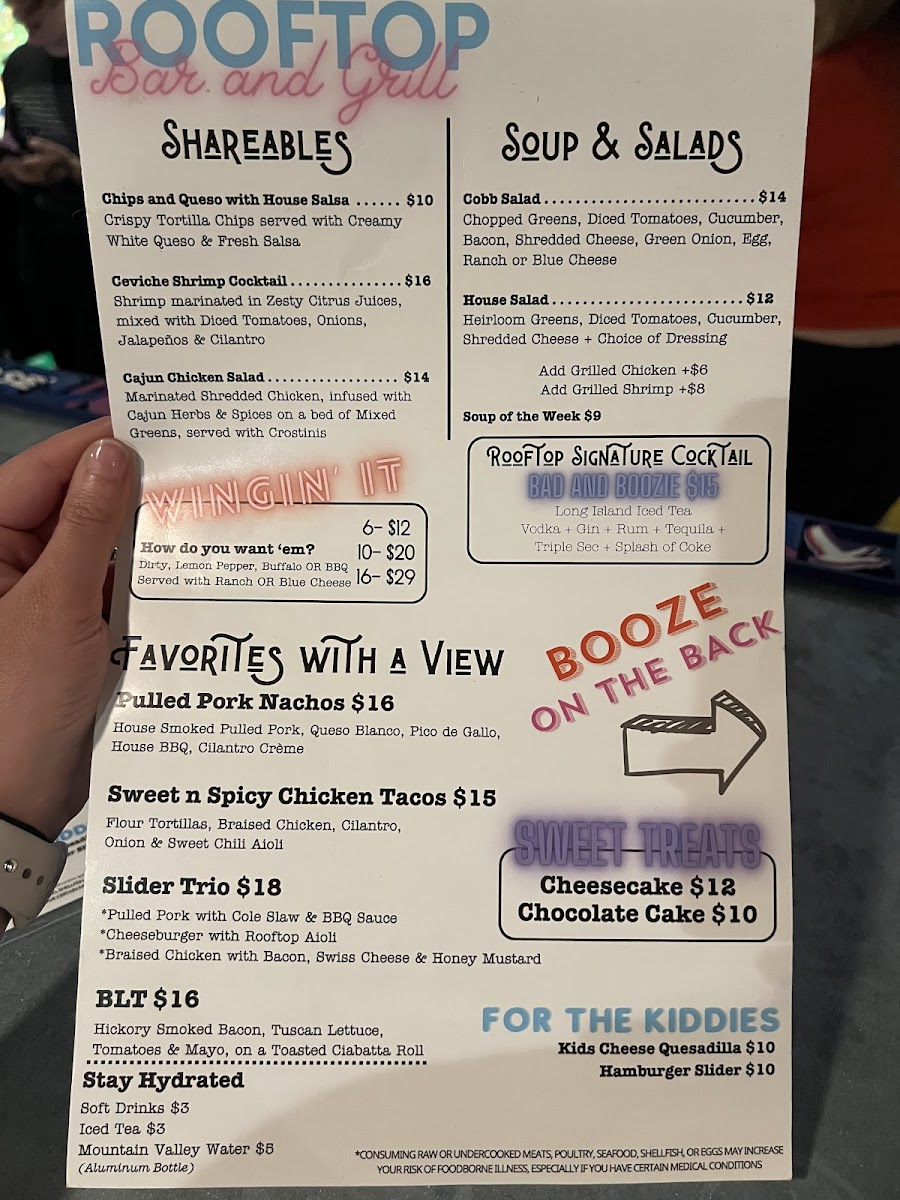 ROOFTOP
Bar and Grill
SHAREABLES
Chips and Queso with House Salsa ...... $10
Crispy Tortilla Chips served with Creamy
White Queso & Fresh Salsa
Ceviche Shrimp Cocktail............... $16
Shrimp marinated in Zesty Citrus Juices,
mixed with Diced Tomatoes, Onions,
Jalapeños & Cilantro
Cajun Chicken Salad.................. $14
Marinated Shredded Chicken, infused with
Cajun Herbs & Spices on a bed of Mixed
Greens, served with Crostinis
SOUP & SALADS
Cobb Salad............................ $14
Chopped Greens, Diced Tomatoes, Cucumber,
Bacon, Shredded Cheese, Green Onion, Egg,
Ranch or Blue Cheese
House Salad.......................... $12
Heirloom Greens, Diced Tomatoes, Cucumber,
Shredded Cheese + Choice of Dressing
Add Grilled Chicken +$6
Add Grilled Shrimp +$8
Soup of the Week $9
ROOFTOP SIGNATURE COCKTAIL
BAD AND BOOZIE $15
Long Island Iced Tea
Vodka + Gin + Rum + Tequila +
Triple Sec + Splash of Coke
WINGIN' IT
6- $12
How do you want 'em? 10- $20
Dirty, Lemon Pepper, Buffalo OR BBQ
Served with Ranch OR Blue Cheese 16- $29
BOOZE
ON THE BACK
FAVORITES WITH A VIEW
Pulled Pork Nachos $16
House Smoked Pulled Pork, Queso Blanco, Pico de Gallo,
House BBQ, Cilantro Crème
Sweet n Spicy Chicken Tacos $15
Flour Tortillas, Braised Chicken, Cilantro,
Onion & Sweet Chili Aioli
Slider Trio $18
*Pulled Pork with Cole Slaw & BBQ Sauce
*Cheeseburger with Rooftop Aioli
*Braised Chicken with Bacon, Swiss Cheese & Honey Mustard
BLT $16
Hickory Smoked Bacon, Tuscan Lettuce,
Tomatoes & Mayo, on a Toasted Ciabatta Roll
SWEET TREATS
Cheesecake $12
Chocolate Cake $10
FOR THE KIDDIES
Kids Cheese Quesadilla $10
Hamburger Slider $10
Stay Hydrated
Soft Drinks $3
Iced Tea $3
Mountain Valley Water $5
(Aluminum Bottle)
*CONSUMING RAW OR UNDERCOOKED MEATS, POULTRY, SEAFOOD, SHELLFISH, OR EGGS MAY INCREASE
YOUR RISK OF FOODBORNE ILLNESS, ESPECIALLY IF YOU HAVE CERTAIN MEDICAL CONDITIONS